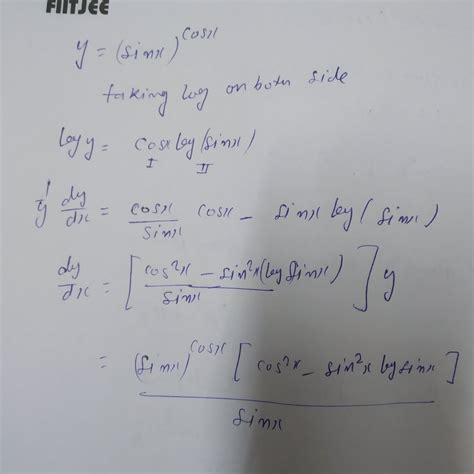 FIITJEE
y = (sinx)^cosx
taking log on both side
log y = cosx log(sinx)
I II
1/y dy/dx = cosx/sinx cosx - sinx log(sinx)
dy/dx = [cos²x - sin²x(log sinx)/sinx] y
= (sinx)^cosx [cos²x - sin²x log sinx]/sinx